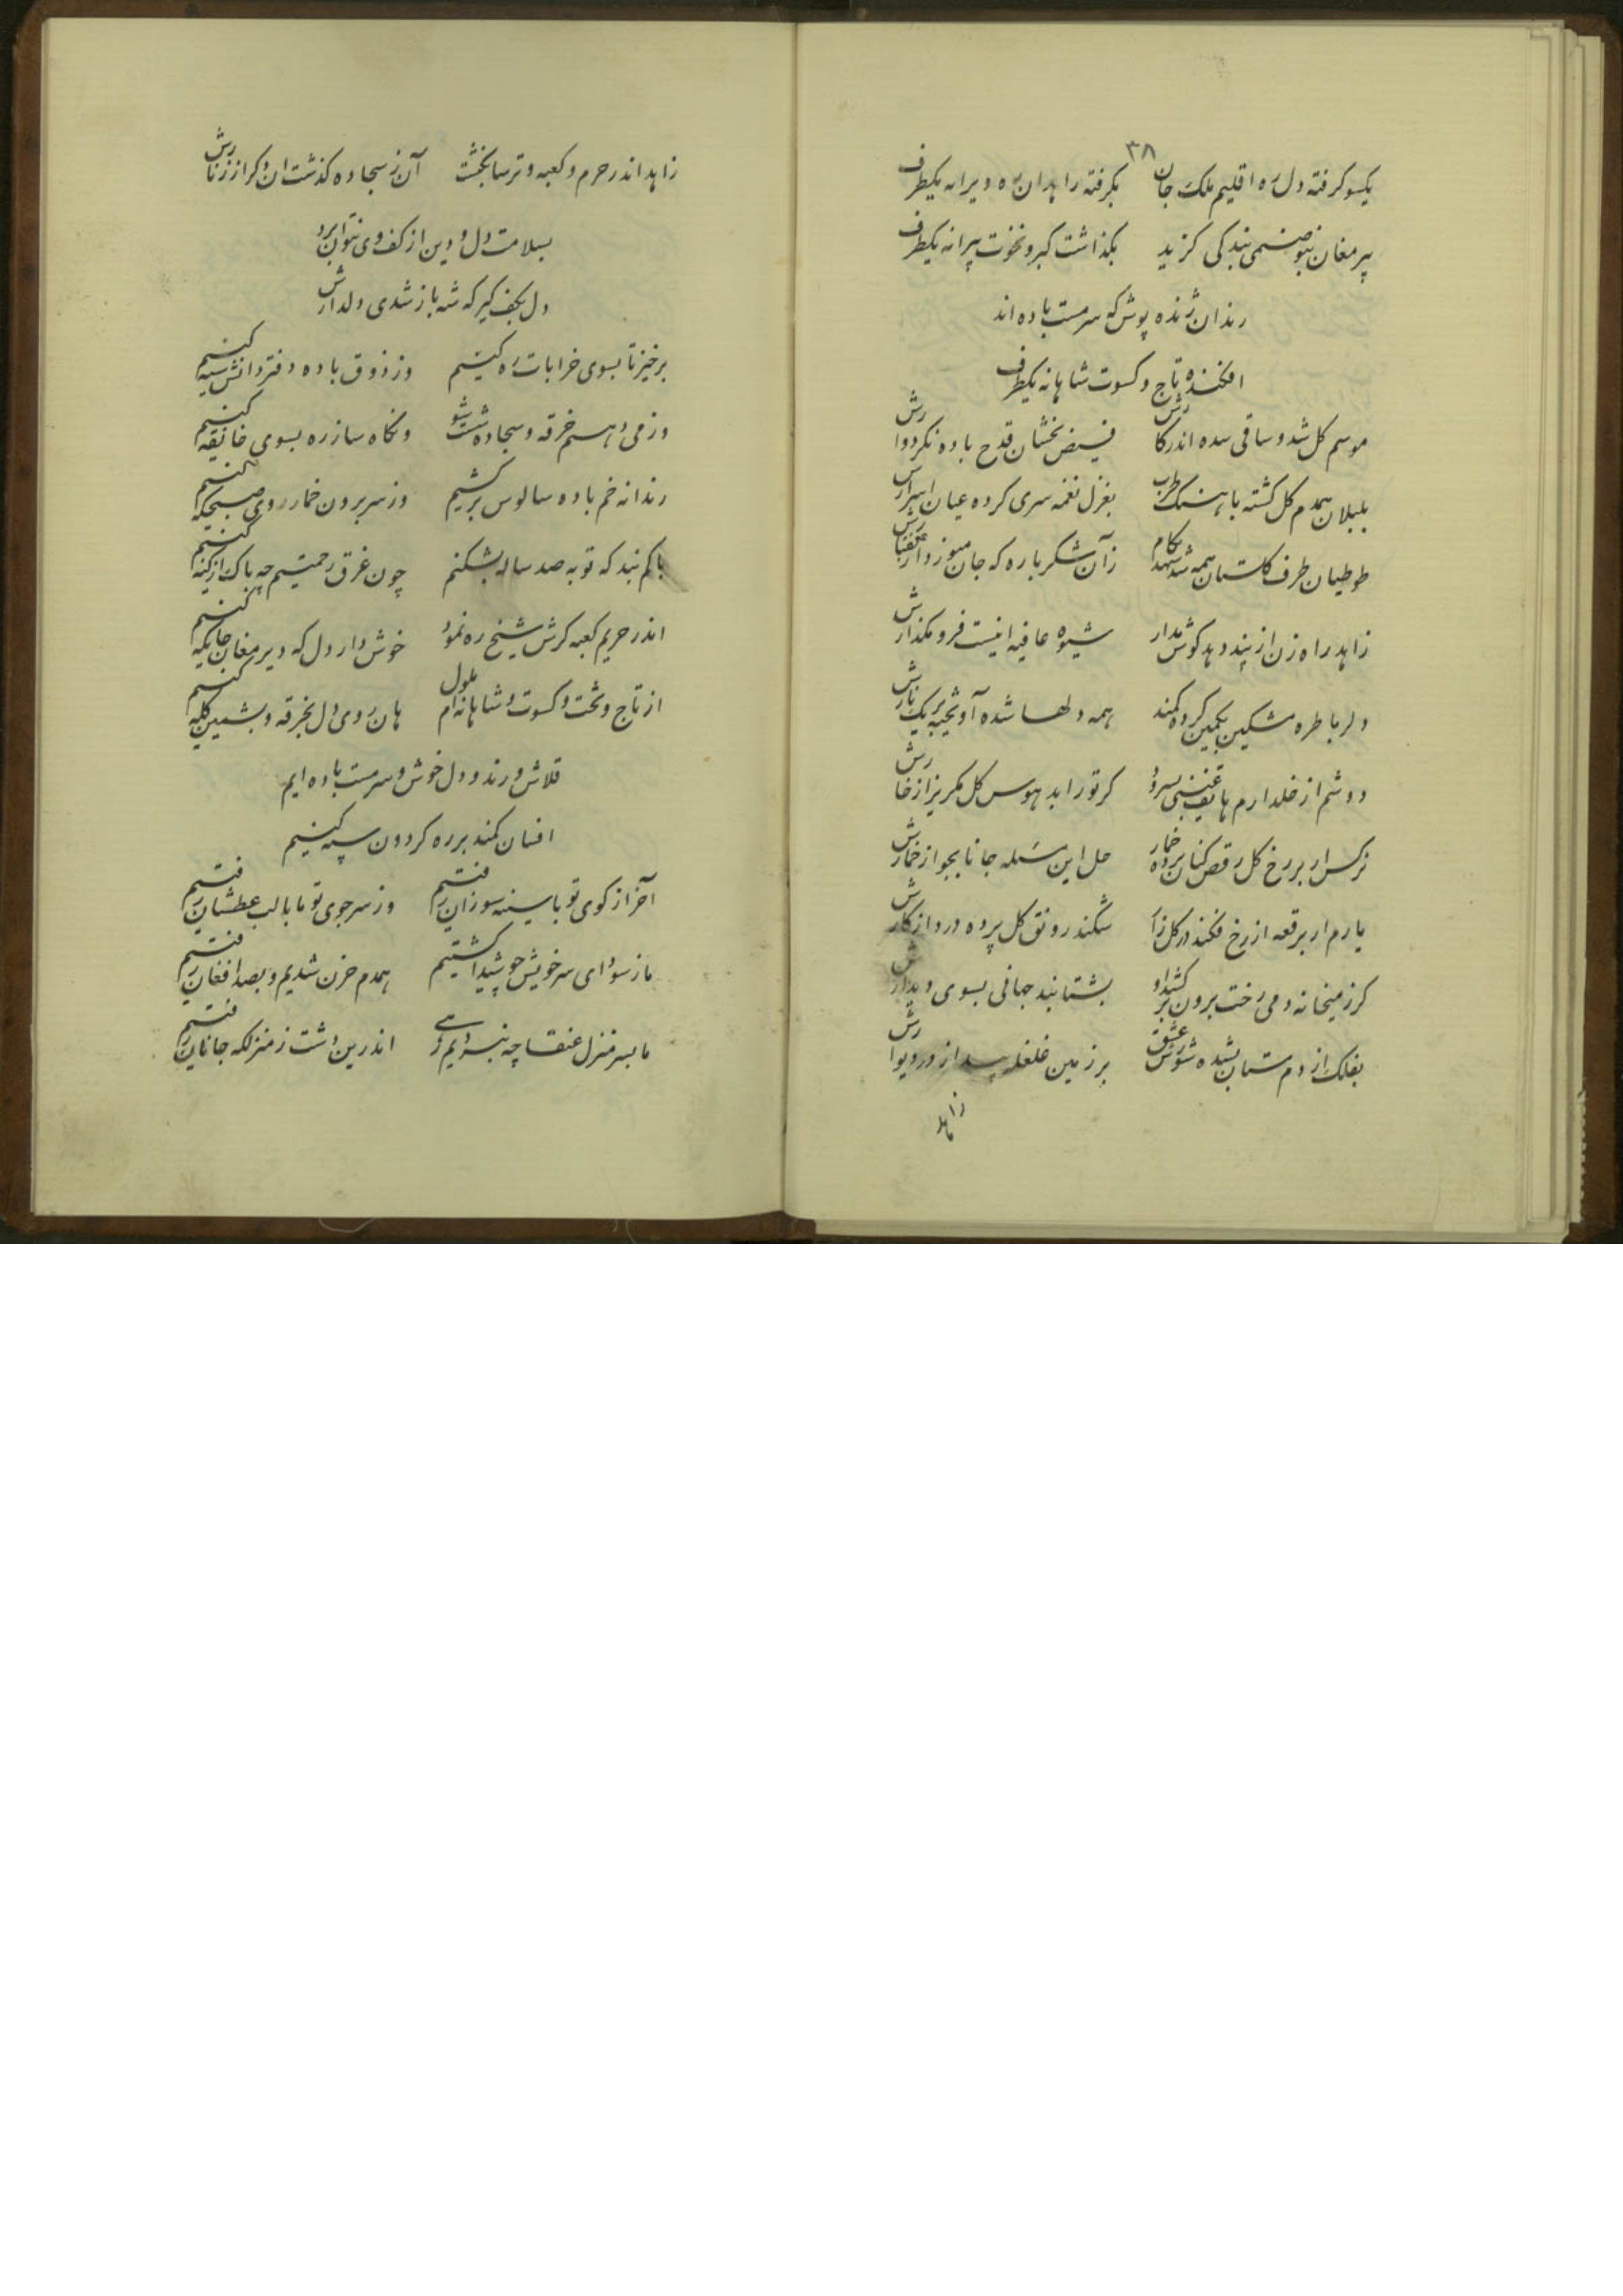 ٣٨
یکسو گرفته دل ره اقلیم ملک جان بگرفته زاهدان ره ویرانه یکطرف
پیر مغان بتو صنمی بندکی کزید بگذاشت کبر و نخوت پیرانه یکطرف
رندان ژنده پوش که سرمست باده اند
افکنده تاج و کسوت شاهانه یکطرف
موسم کل شد و ساقی شده اندر کارش فیض بخشان قدح باده نکردوارش
بلبلان همدم کل کشته باهنک طرب بغزل نغمه سری کرده عیان اسرارش
طوطیان طرف کلستان همه شد شهد بکام زآن شکرباره که جان میوزد از
زاهد راه زن از پند دهد کوش مدار شیوه عافیه اینست فرو مکذارش
دلربا طره مشکین بکمین کرده کمند همه دلها شده آویخته بر یک تارش
دوشم از خلد ارم هاتف غیبی بسرود کر تو را بد هوس کل مکریز از خارش
نرکس ار بر رخ کل رقص کنان برده خمار حل این مسله جانا بجو از خمارش
یارم ار برقعه از رخ فکند در کلزار شکند رونق کل پرده درد از کارش
کر ز میخانه دمی رخت برون بر کشد او بشتابند جهانی بسوی دیدارش
بفلک از دم مستان بشده شورش عشق بر زمین غلغله از در و دیوارش
زاهد
زاهد اندر حرم و کعبه و ترسا بکنشت آن ز سجاده کذشت ان دکر از زنارش
بسلامت دل و دین از کف وی نتوان برد
دل بکف کیر که شه باز شدی دلدارش
برخیز تا بسوی خرابات ره کنیم وز ذوق باده دفتر دانش سیه کنیم
وز می دهیم خرقه و سجاده شست شو ونکاه ساز ره بسوی خانقه کنیم
رندانه خم باده سالوس بر کشیم وز سر برون خمار روی صبحکه کنیم
باکم نبد که توبه صد ساله بشکنم چون غرق رحمتیم چه باک از کنه کنیم
اندر حریم کعبه کرش شیخ ره نمود خوش دار دل که دیر مغان جایکه کنیم
از تاج و تخت و کسوت شاهانه ام ملول هان روی دل بخرقه و پشمین کله کنیم
قلاش و رند و دل خوش و سرمست باده ایم
افسان کمند بر ره کردون سپه کنیم
آخر از کوی تو با سینه سوزان رفتیم وز سر جوی تو ما با لب عطشان رفتیم
ما ز سودای سر خویش چو شیدا کشتیم همدم حزن شدیم و بصد افغان رفتیم
ما بسر منزل عنقا چه نبردیم رهی اندرین دشت ز منزلکه جانان رفتیم